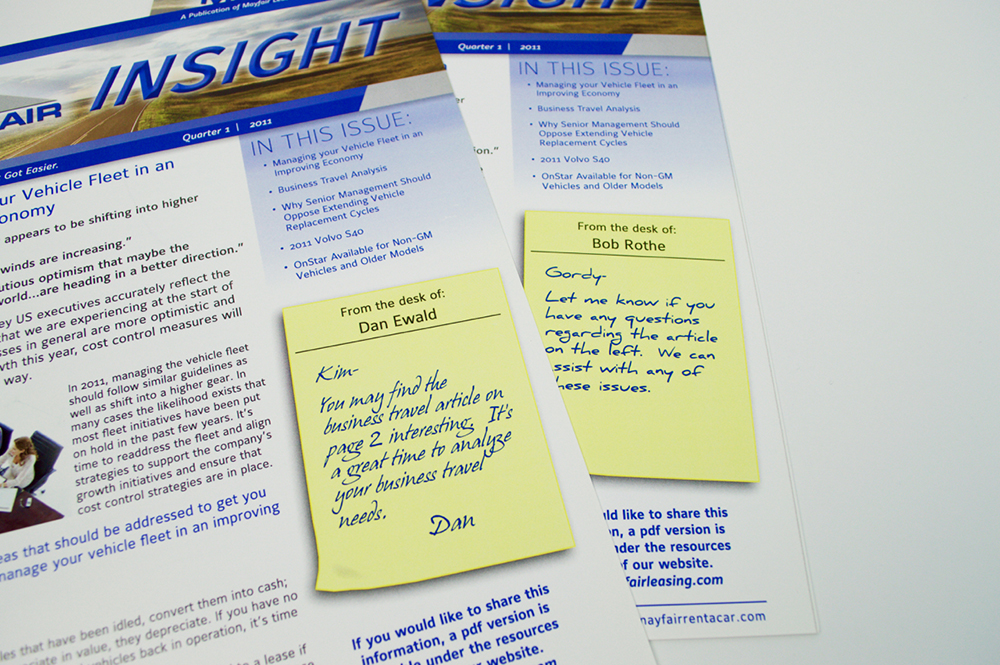 A Publication of Mayfair
INSIGHT
AIR
Quarter 1 | 2011
Got Easier.
Vehicle Fleet in an
appears to be shifting into higher
winds are increasing.”
optimism that maybe the
world...are heading in a better direction.”
US executives accurately reflect the
that we are experiencing at the start of
in general are more optimistic and
this year, cost control measures will
way.
In 2011, managing the vehicle fleet
should follow similar guidelines as
well as shift into a higher gear. In
many cases the likelihood exists that
most fleet initiatives have been put
on hold in the past few years. It's
time to readdress the fleet and align
strategies to support the company's
growth initiatives and ensure that
cost control strategies are in place.
that should be addressed to get you
manage your vehicle fleet in an improving
that have been idled, convert them into cash;
in value, they depreciate. If you have no
vehicles back in operation, it's time
to a lease if
IN THIS ISSUE:
• Managing your Vehicle Fleet in an
Improving Economy
• Business Travel Analysis
• Why Senior Management Should
Oppose Extending Vehicle
Replacement Cycles
• 2011 Volvo S40
• OnStar Available for Non-GM
Vehicles and Older Models
From the desk of:
Dan Ewald
Kim-
You may find the
business travel article on
page 2 interesting. It's
a great time to analyze
your business travel
needs.
Dan
If you would like to share this
information, a pdf version is
under the resources
of our website.
Quarter 1 | 2011
IN THIS ISSUE:
• Managing your Vehicle Fleet in an
Improving Economy
• Business Travel Analysis
• Why Senior Management Should
Oppose Extending Vehicle
Replacement Cycles
• 2011 Volvo S40
• OnStar Available for Non-GM
Vehicles and Older Models
From the desk of:
Bob Rothe
Gordy-
Let me know if you
have any questions
regarding the article
on the left. We can
assist with any of
these issues.
like to share this
a pdf version is
under the resources
of our website.
fairleasing.com
mayfairrentacar.com